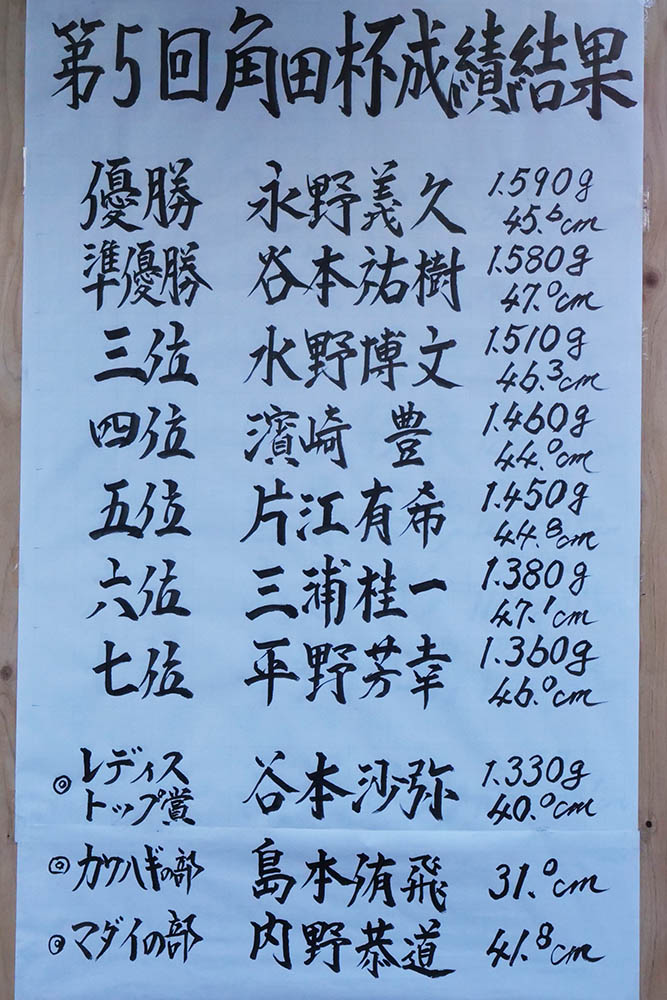 第5回角田杯成績結果
優勝 永野義久 1.590g
45.6cm
準優勝 谷本祐樹 1.580g
47.0cm
三位 水野博文 1.510g
46.3cm
四位 濱崎 豊 1.460g
44.0cm
五位 片江有希 1.450g
44.8cm
六位 三浦桂一 1.380g
47.1cm
七位 平野芳幸 1.360g
46.0cm
◎ レディス
トップ賞 谷本沙弥 1.330g
40.0cm
◎ カワハギの部 島本侑飛 31.0cm
◎ マダイの部 内野恭道 41.8cm